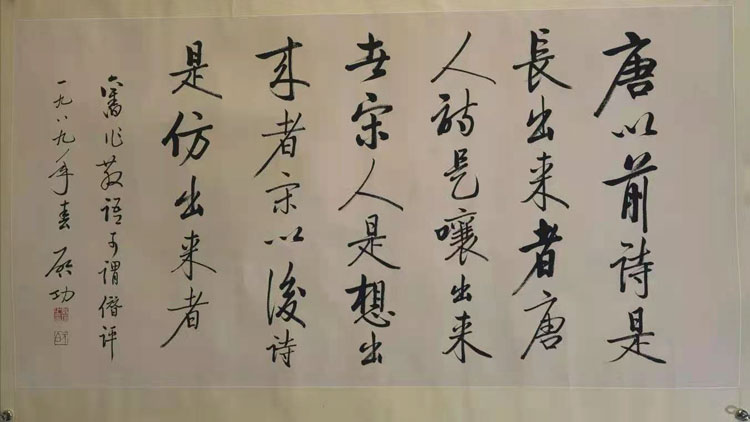 唐以前詩是
長出来者唐
人詩是嚷出来
者宋人是想出
来者宋以後诗
是仿出来者
舊作散語可謂僭评
一九八九年春 启功